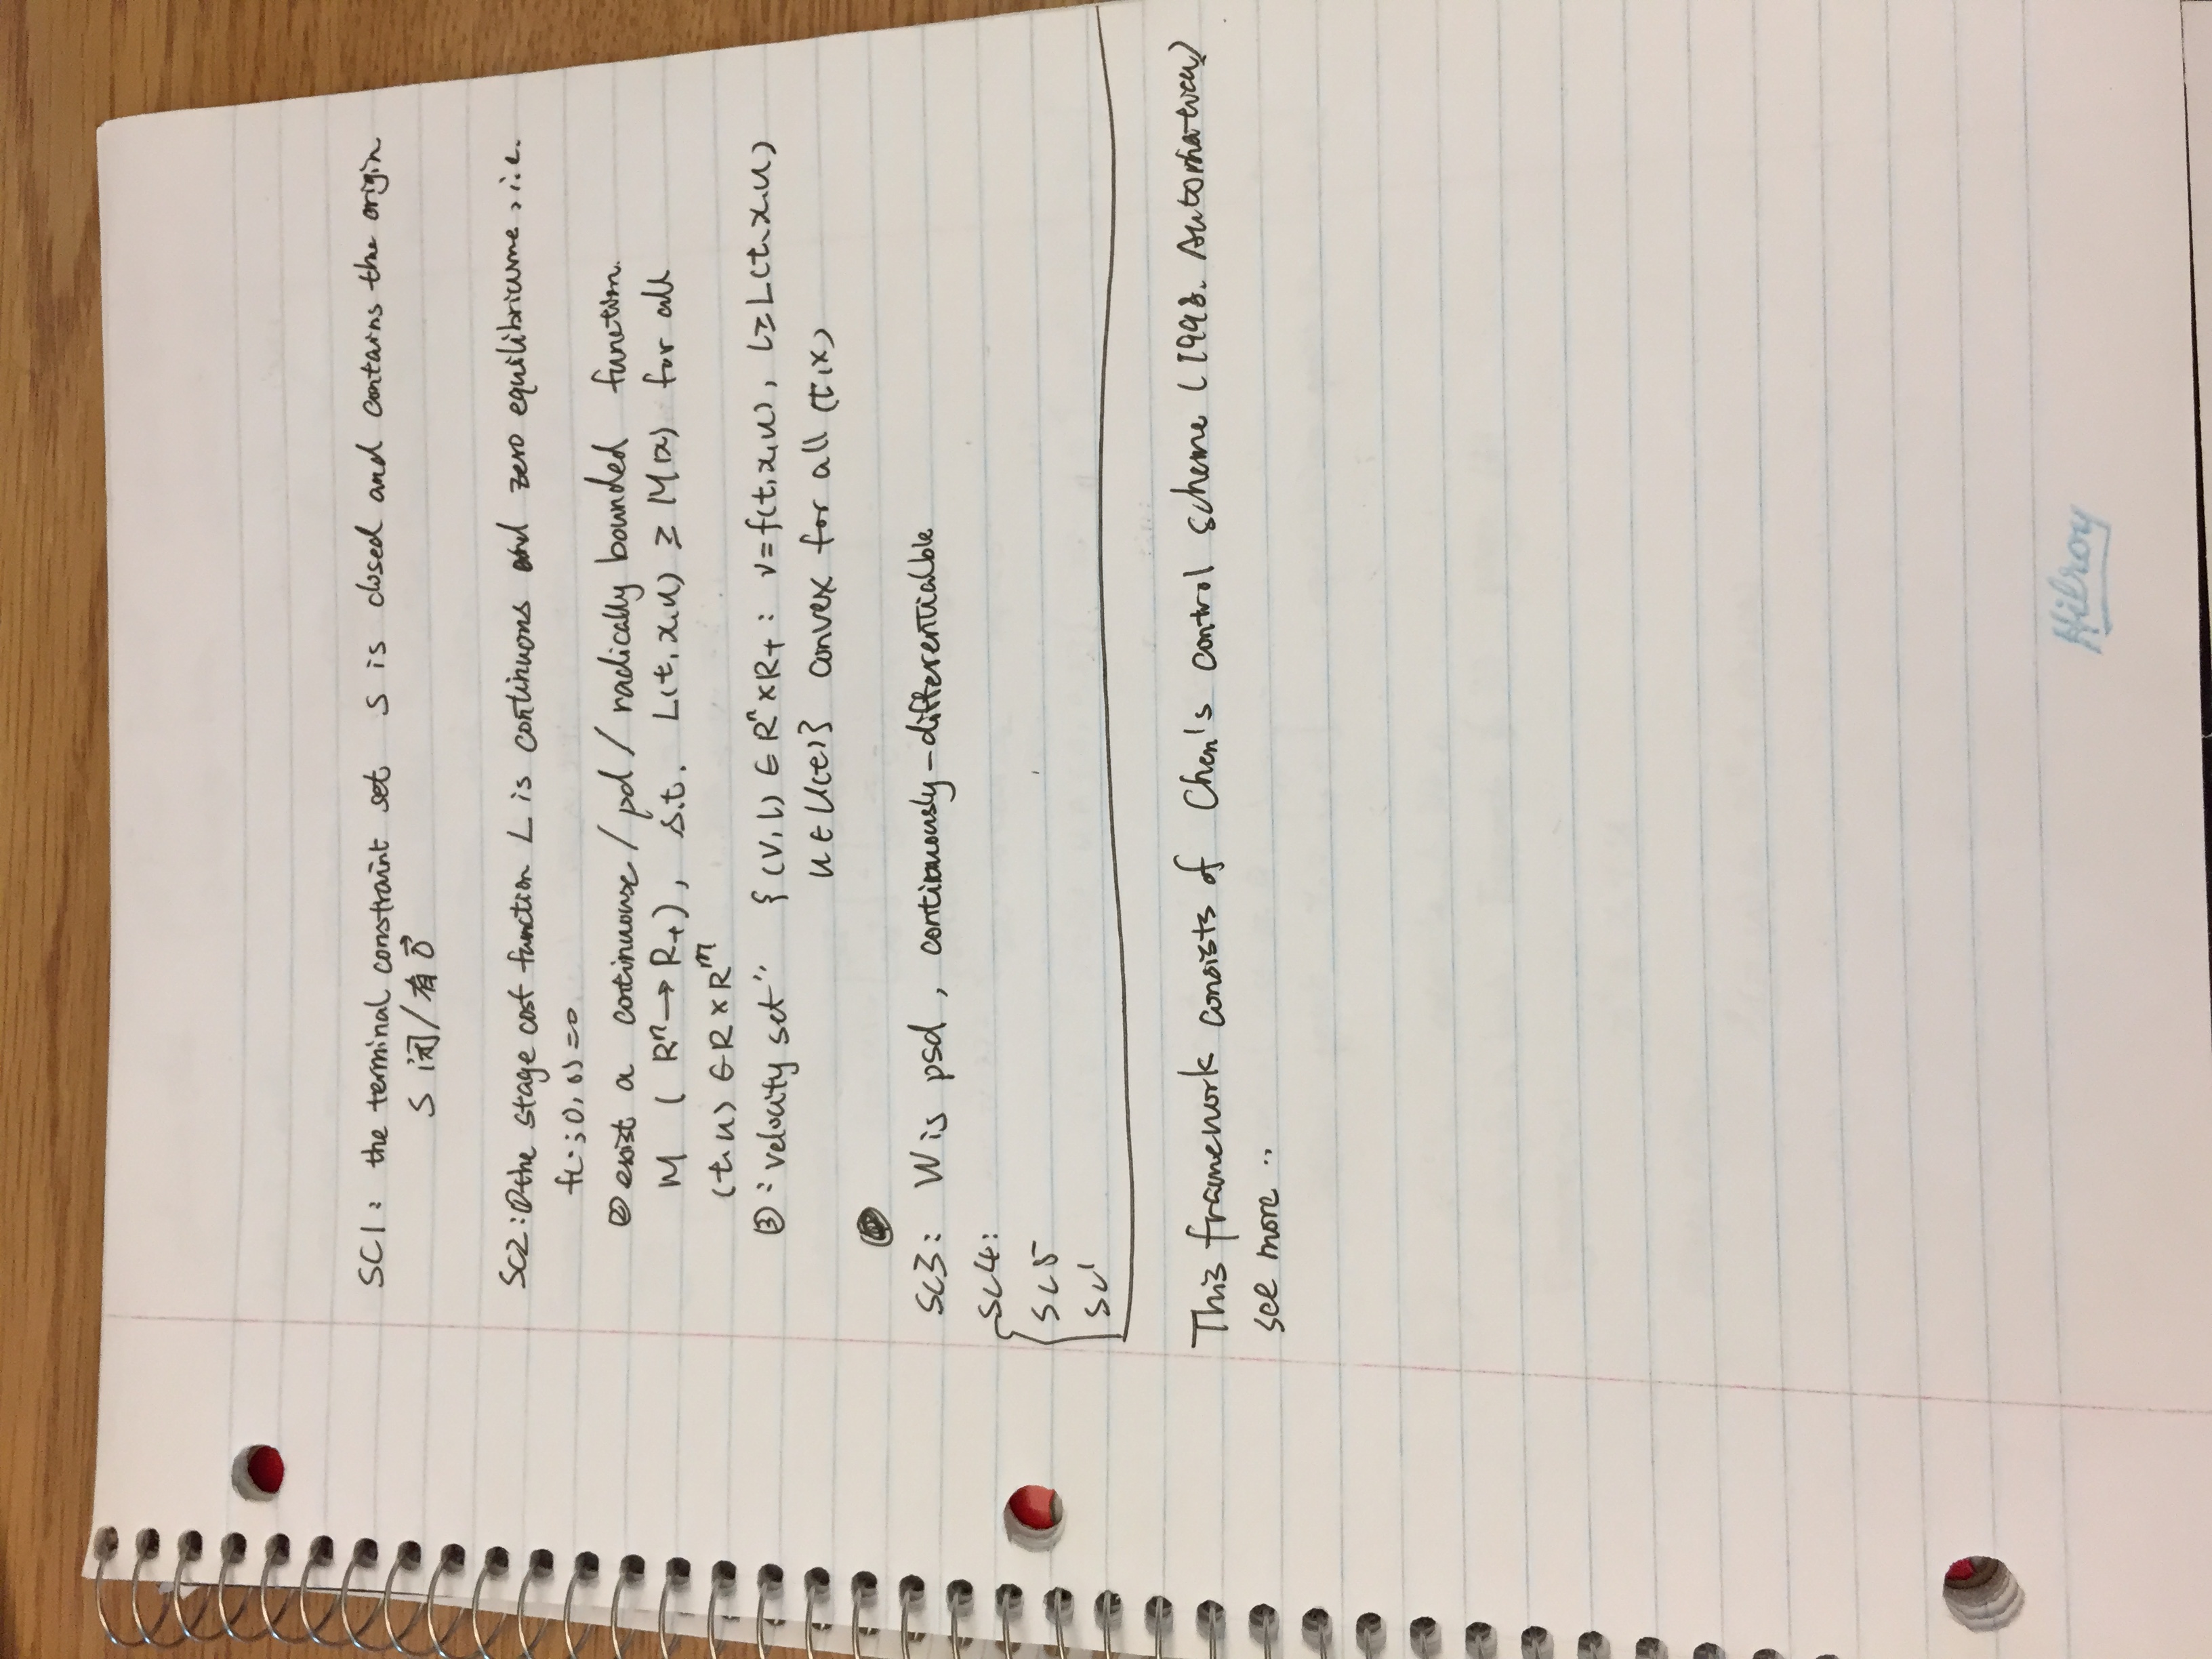 SC1: the terminal constraint set S is closed and contains the origin
S 闭/有 0⃗
SC2: ① the stage cost function L is continuous and zero equilibriume, i.e.
f(·; 0, 0) = 0
② exist a continuouse / pd / radically bounded function.
M ( Rⁿ → R₊), s.t. L(t, x, u) ≥ M(x) for all
(t, u) ∈ R × Rᵐ
③ "velocity set" { (v, l) ∈ Rⁿ × R₊ : v = f(t, x, u), l ≥ L(t, x, u)
u ∈ U(t) } convex for all (t, x)
SC3: W is psd, continuously-differentialble
SC4:
SC5
SC'
This framework consists of Chen's control scheme (1998. Automatica)
see more ..
Hilroy